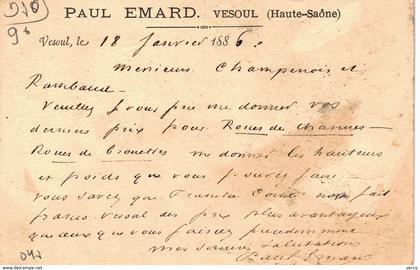 PAUL EMARD. VESOUL (Haute-Saône)
Vesoul, le 18 Janvier 1886.
Messieurs Champenois et
Rambaud
Veuillez je vous prie me donner vos
derniers prix pour Roues de charrues
Roues de brouettes me donner les hauteurs
et poids que vous pouvez faire
vous savez que fait
franco Vesoul des prix plus avantageux
que ceux que vous faisiez
Mes sincères Salutations
Paul Emard